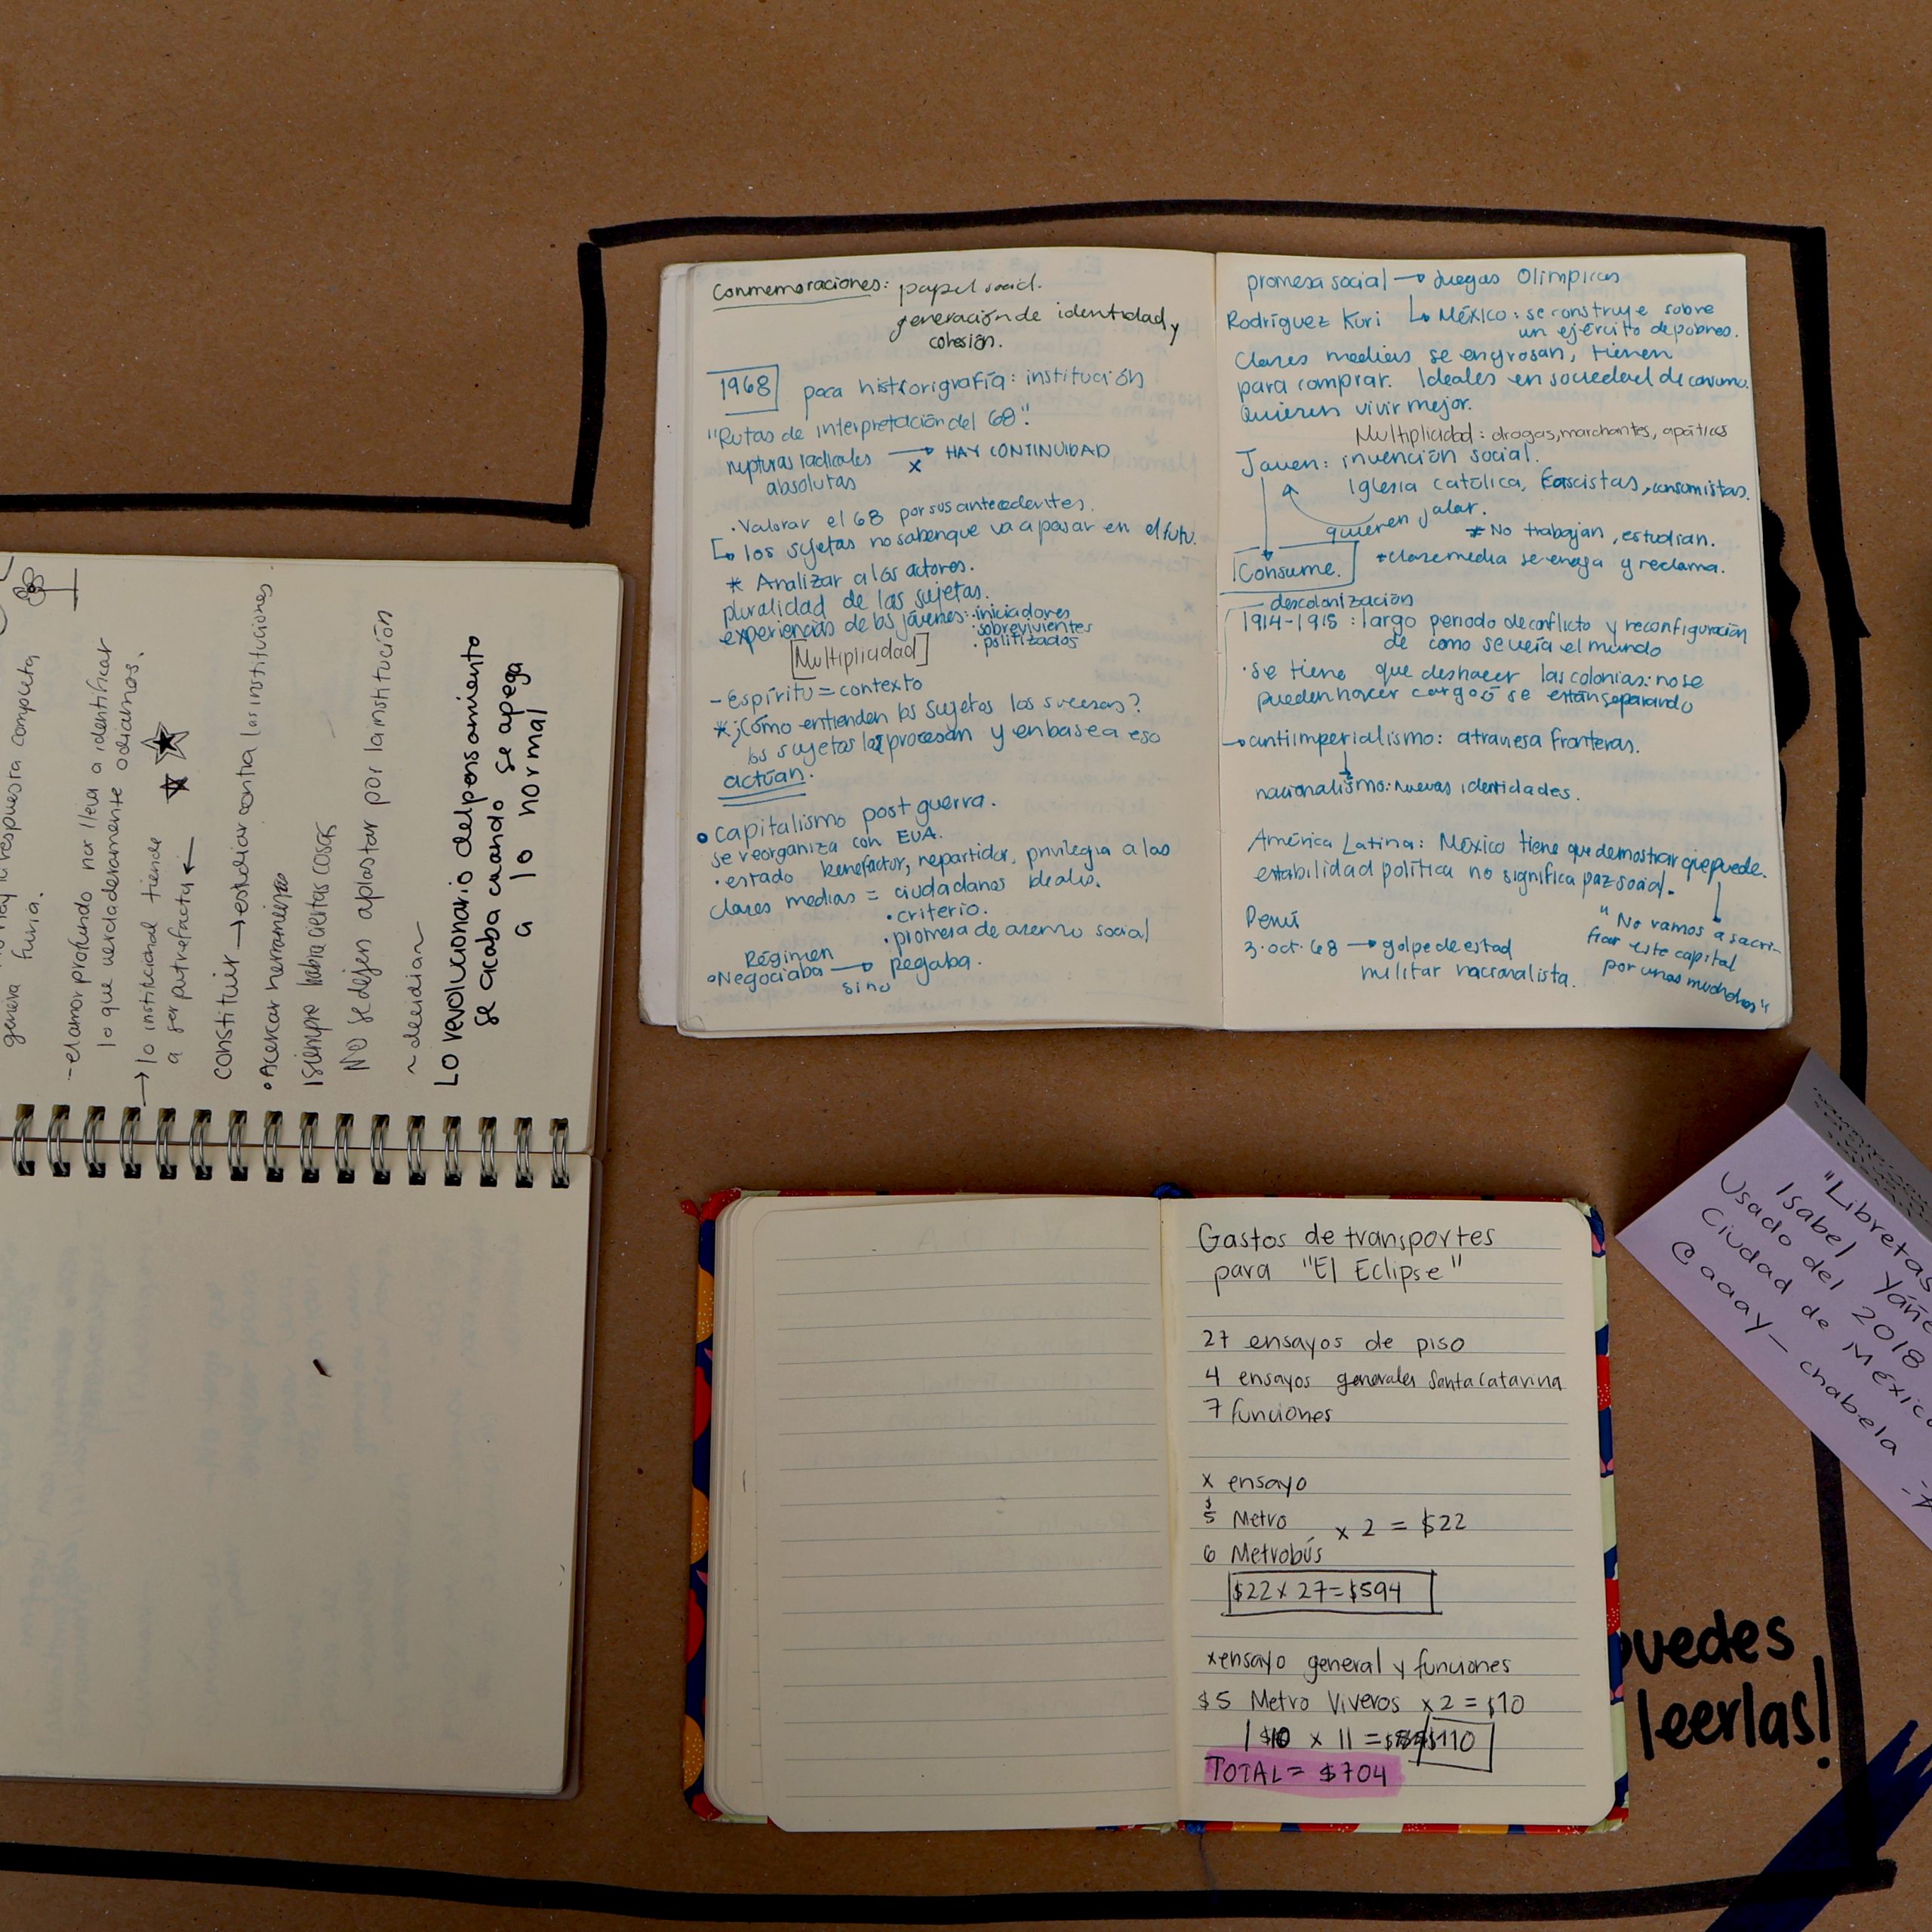 respuesta computa
genera furia.
- el amor profundo nos lleva a identificar
lo que verdaderamente odiamos.
→ lo institucional tiende
a ser putrefacta ←
constituir → estudiar contra las instituciones
• Acercar herramientas
siempre habrá ciertas cosas
No se dejen aplastar por la institución
~ decidir ~
Lo revolucionario del pensamiento
se acaba cuando se apega
a lo normal
Conmemoraciones: papel social.
generación de identidad y
cohesión.
1968 poca histrorigrafía: institución
"Rutas de interpretación del 68".
rupturas radicales → HAY CONTINUIDAD
absolutas x
· Valorar el 68 por sus antecedentes.
↳ los sujetas no saben que va a pasar en el futu.
* Analizar a los actores.
pluralidad de las sujetas.
experiencias de los jóvenes: · iniciadores
· sobrevivientes
· politizados
[Multiplicidad]
- Espíritu = contexto
* ¿Cómo entienden los sujetos los sucesos?
los sujetas los procesan y en base a eso
actúan.
• capitalismo post guerra.
se reorganiza con EUA.
· estado benefactor, repartidor, privilegia a las
clases medias = ciudadanos ideales.
• criterio.
• promesa de acenso social
Régimen
• Negociaba → pegaba.
sino
promesa social → Juegos Olímpicos
Rodríguez Kuri ↳ México: se construye sobre
un ejército de pobres.
Clases medias se engrosan, tienen
para comprar. Ideales en sociedad de consumo.
Quieren vivir mejor.
Multiplicidad: drogas, marchantes, apáticos
Joven: invención social.
Iglesia católica, Fascistas, consumistas.
quieren jalar.
* No trabajan, estudian.
Consume. * clase media se enoja y reclama.
descolonización
1914-1918: largo periodo de conflicto y reconfiguración
de como se vería el mundo
· se tiene que deshacer las colonias: no se
pueden hacer cargo ó se están separando
→ antiimperialismo: atraviesa fronteras.
nacionalismo: nuevas identidades.
América Latina: México tiene que demostrar que puede.
estabilidad política no significa paz social.
Perú
3· oct· 68 → golpe de estad
militar nacionalista.
"No vamos a sacri-
ficar este capital
por unos muchachos"
Gastos de transportes
para "El Eclipse"
27 ensayos de piso
4 ensayos generales Santa Catarina
7 funciones
x ensayo
$5 Metro x 2 = $22
6 Metrobús
$22 x 27 = $594
x ensayo general y funciones
$5 Metro Viveros x 2 = $10
$10 x 11 = $110
TOTAL = $704
"Libretas
Isabel Yáñe
Usado del 2018
Ciudad de México
Caaay - chabela
puedes
leerlas!